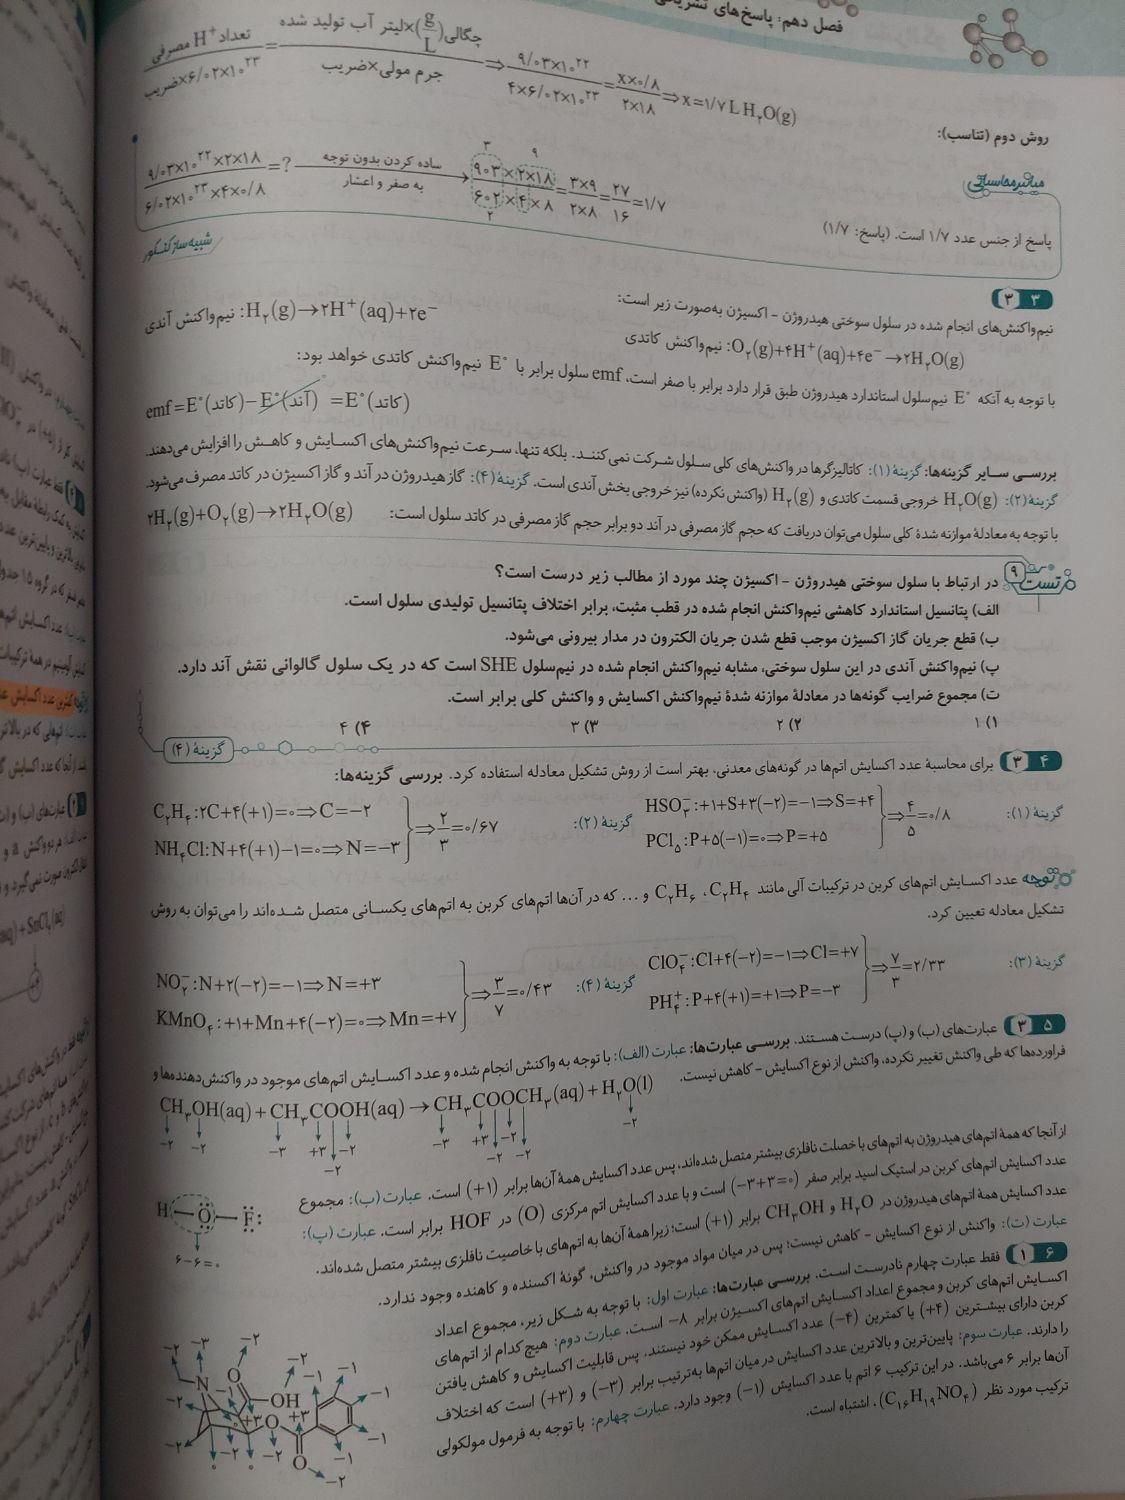 فصل دهم: پاسخ‌های تشریحی
تعداد H⁺ مصرفی / ضریب×۶/۰۲×۱۰²³ = چگالی(g/L)×لیتر آب تولید شده / جرم مولی×ضریب ⇒ ۹/۰۳×۱۰²² / ۴×۶/۰۲×۱۰²³ = x×۰/۸ / ۲×۱۸ ⇒ x=۱/۷ L H₂O(g)
روش دوم (تناسب):
میانبر محاسباتی
۹/۰۳×۱۰²²×۲×۱۸ / ۶/۰۲×۱۰²³×۴×۰/۸ =? ساده کردن بدون توجه به صفر و اعشار → ۹۰۳×۲×۱۸ / ۶۰۲×۴×۸ = ۳×۹ / ۲×۸ = ۲۷ / ۱۶ =۱/۷
۳ ۹ ۲
پاسخ از جنس عدد ۱/۷ است. (پاسخ: ۱/۷)
شبیه‌ساز کنکور
۳ ۳
نیم‌واکنش‌های انجام شده در سلول سوختی هیدروژن - اکسیژن به‌صورت زیر است:
نیم‌واکنش آندی :H₂(g)→۲H⁺(aq)+۲e⁻
نیم‌واکنش کاتدی :O₂(g)+۴H⁺(aq)+۴e⁻→۲H₂O(g)
با توجه به آنکه E° نیم‌سلول استاندارد هیدروژن طبق قرار دارد برابر با صفر است، emf سلول برابر با E° نیم‌واکنش کاتدی خواهد بود:
emf=E°(کاتد)−E°(آند) =E°(کاتد)
بررسی سایر گزینه‌ها: گزینهٔ (۱): کاتالیزگرها در واکنش‌های کلی سلول شرکت نمی‌کنند. بلکه تنها، سرعت نیم‌واکنش‌های اکسایش و کاهش را افزایش می‌دهند.
گزینهٔ (۲): H₂O(g) خروجی قسمت کاتدی و H₂(g) (واکنش نکرده) نیز خروجی بخش آندی است. گزینهٔ (۴): گاز هیدروژن در آند و گاز اکسیژن در کاتد مصرف می‌شود.
با توجه به معادلهٔ موازنه شدهٔ کلی سلول می‌توان دریافت که حجم گاز مصرفی در آند دو برابر حجم گاز مصرفی در کاتد سلول است: ۲H₂(g)+O₂(g)→۲H₂O(g)
تست ۹ در ارتباط با سلول سوختی هیدروژن - اکسیژن چند مورد از مطالب زیر درست است؟
الف) پتانسیل استاندارد کاهشی نیم‌واکنش انجام شده در قطب مثبت، برابر اختلاف پتانسیل تولیدی سلول است.
ب) قطع جریان گاز اکسیژن موجب قطع شدن جریان الکترون در مدار بیرونی می‌شود.
پ) نیم‌واکنش آندی در این سلول سوختی، مشابه نیم‌واکنش انجام شده در نیم‌سلول SHE است که در یک سلول گالوانی نقش آند دارد.
ت) مجموع ضرایب گونه‌ها در معادلهٔ موازنه شدهٔ نیم‌واکنش اکسایش و واکنش کلی برابر است.
۱) ۱ ۲) ۲ ۳) ۳ ۴) ۴
گزینهٔ (۴)
۴ ۳ برای محاسبهٔ عدد اکسایش اتم‌ها در گونه‌های معدنی، بهتر است از روش تشکیل معادله استفاده کرد. بررسی گزینه‌ها:
گزینهٔ (۱): HSO₃⁻:+۱+S+۳(−۲)=−۱⇒S=+۴
PCl₅:P+۵(−۱)=۰⇒P=+۵
⇒ ۴/۵ =۰/۸
گزینهٔ (۲): C₂H₄:۲C+۴(+۱)=۰⇒C=−۲
NH₄Cl:N+۴(+۱)−۱=۰⇒N=−۳
⇒ ۲/۳ =۰/۶۷
توجه عدد اکسایش اتم‌های کربن در ترکیبات آلی مانند C₂H₄، C₂H₆ و ... که در آن‌ها اتم‌های کربن به اتم‌های یکسانی متصل شده‌اند را می‌توان به روش
تشکیل معادله تعیین کرد.
گزینهٔ (۳): ClO₄⁻:Cl+۴(−۲)=−۱⇒Cl=+۷
PH₄⁺:P+۴(+۱)=+۱⇒P=−۳
⇒ ۷/۳ =۲/۳۳
گزینهٔ (۴): NO₂⁻:N+۲(−۲)=−۱⇒N=+۳
KMnO₄:+۱+Mn+۴(−۲)=۰⇒Mn=+۷
⇒ ۳/۷ =۰/۴۳
۵ ۳ عبارت‌های (ب) و (پ) درست هستند. بررسی عبارت‌ها: عبارت (الف): با توجه به واکنش انجام شده و عدد اکسایش اتم‌های موجود در واکنش‌دهنده‌ها و
فراورده‌ها که طی واکنش تغییر نکرده، واکنش از نوع اکسایش - کاهش نیست.
CH₃OH(aq)+CH₃COOH(aq)→CH₃COOCH₃(aq)+H₂O(l)
−۲ −۲ −۳ +۳ −۲ −۲ −۳ +۳ −۲ −۲ −۲ −۲
از آنجا که همهٔ اتم‌های هیدروژن به اتم‌های با خصلت نافلزی بیشتر متصل شده‌اند، پس عدد اکسایش همهٔ آن‌ها برابر (+۱) است. عبارت (ب): مجموع
عدد اکسایش اتم‌های کربن در استیک اسید برابر صفر (−۳+۳=۰) است و با عدد اکسایش اتم مرکزی (O) در HOF برابر است. عبارت (پ):
عدد اکسایش همهٔ اتم‌های هیدروژن در H₂O و CH₃OH برابر (+۱) است؛ زیرا همهٔ آن‌ها به اتم‌های با خاصیت نافلزی بیشتر متصل شده‌اند.
عبارت (ت): واکنش از نوع اکسایش - کاهش نیست؛ پس در میان مواد موجود در واکنش، گونهٔ اکسنده و کاهنده وجود ندارد.
H O F
۶−۶=۰
۶ ۱ فقط عبارت چهارم نادرست است. بررسی عبارت‌ها: عبارت اول: با توجه به شکل زیر، مجموع اعداد
اکسایش اتم‌های کربن و مجموع اعداد اکسایش اتم‌های اکسیژن برابر −۸ است. عبارت دوم: هیچ‌کدام از اتم‌های
کربن دارای بیشترین (+۴) یا کمترین (−۴) عدد اکسایش ممکن خود نیستند. پس قابلیت اکسایش و کاهش یافتن
را دارند. عبارت سوم: پایین‌ترین و بالاترین عدد اکسایش در میان اتم‌ها به‌ترتیب برابر (−۳) و (+۳) است که اختلاف
آن‌ها برابر ۶ می‌باشد. در این ترکیب ۶ اتم با عدد اکسایش (−۱) وجود دارد. عبارت چهارم: با توجه به فرمول مولکولی
ترکیب مورد نظر (C₁₆H₁₉NO₄)، اشتباه است.